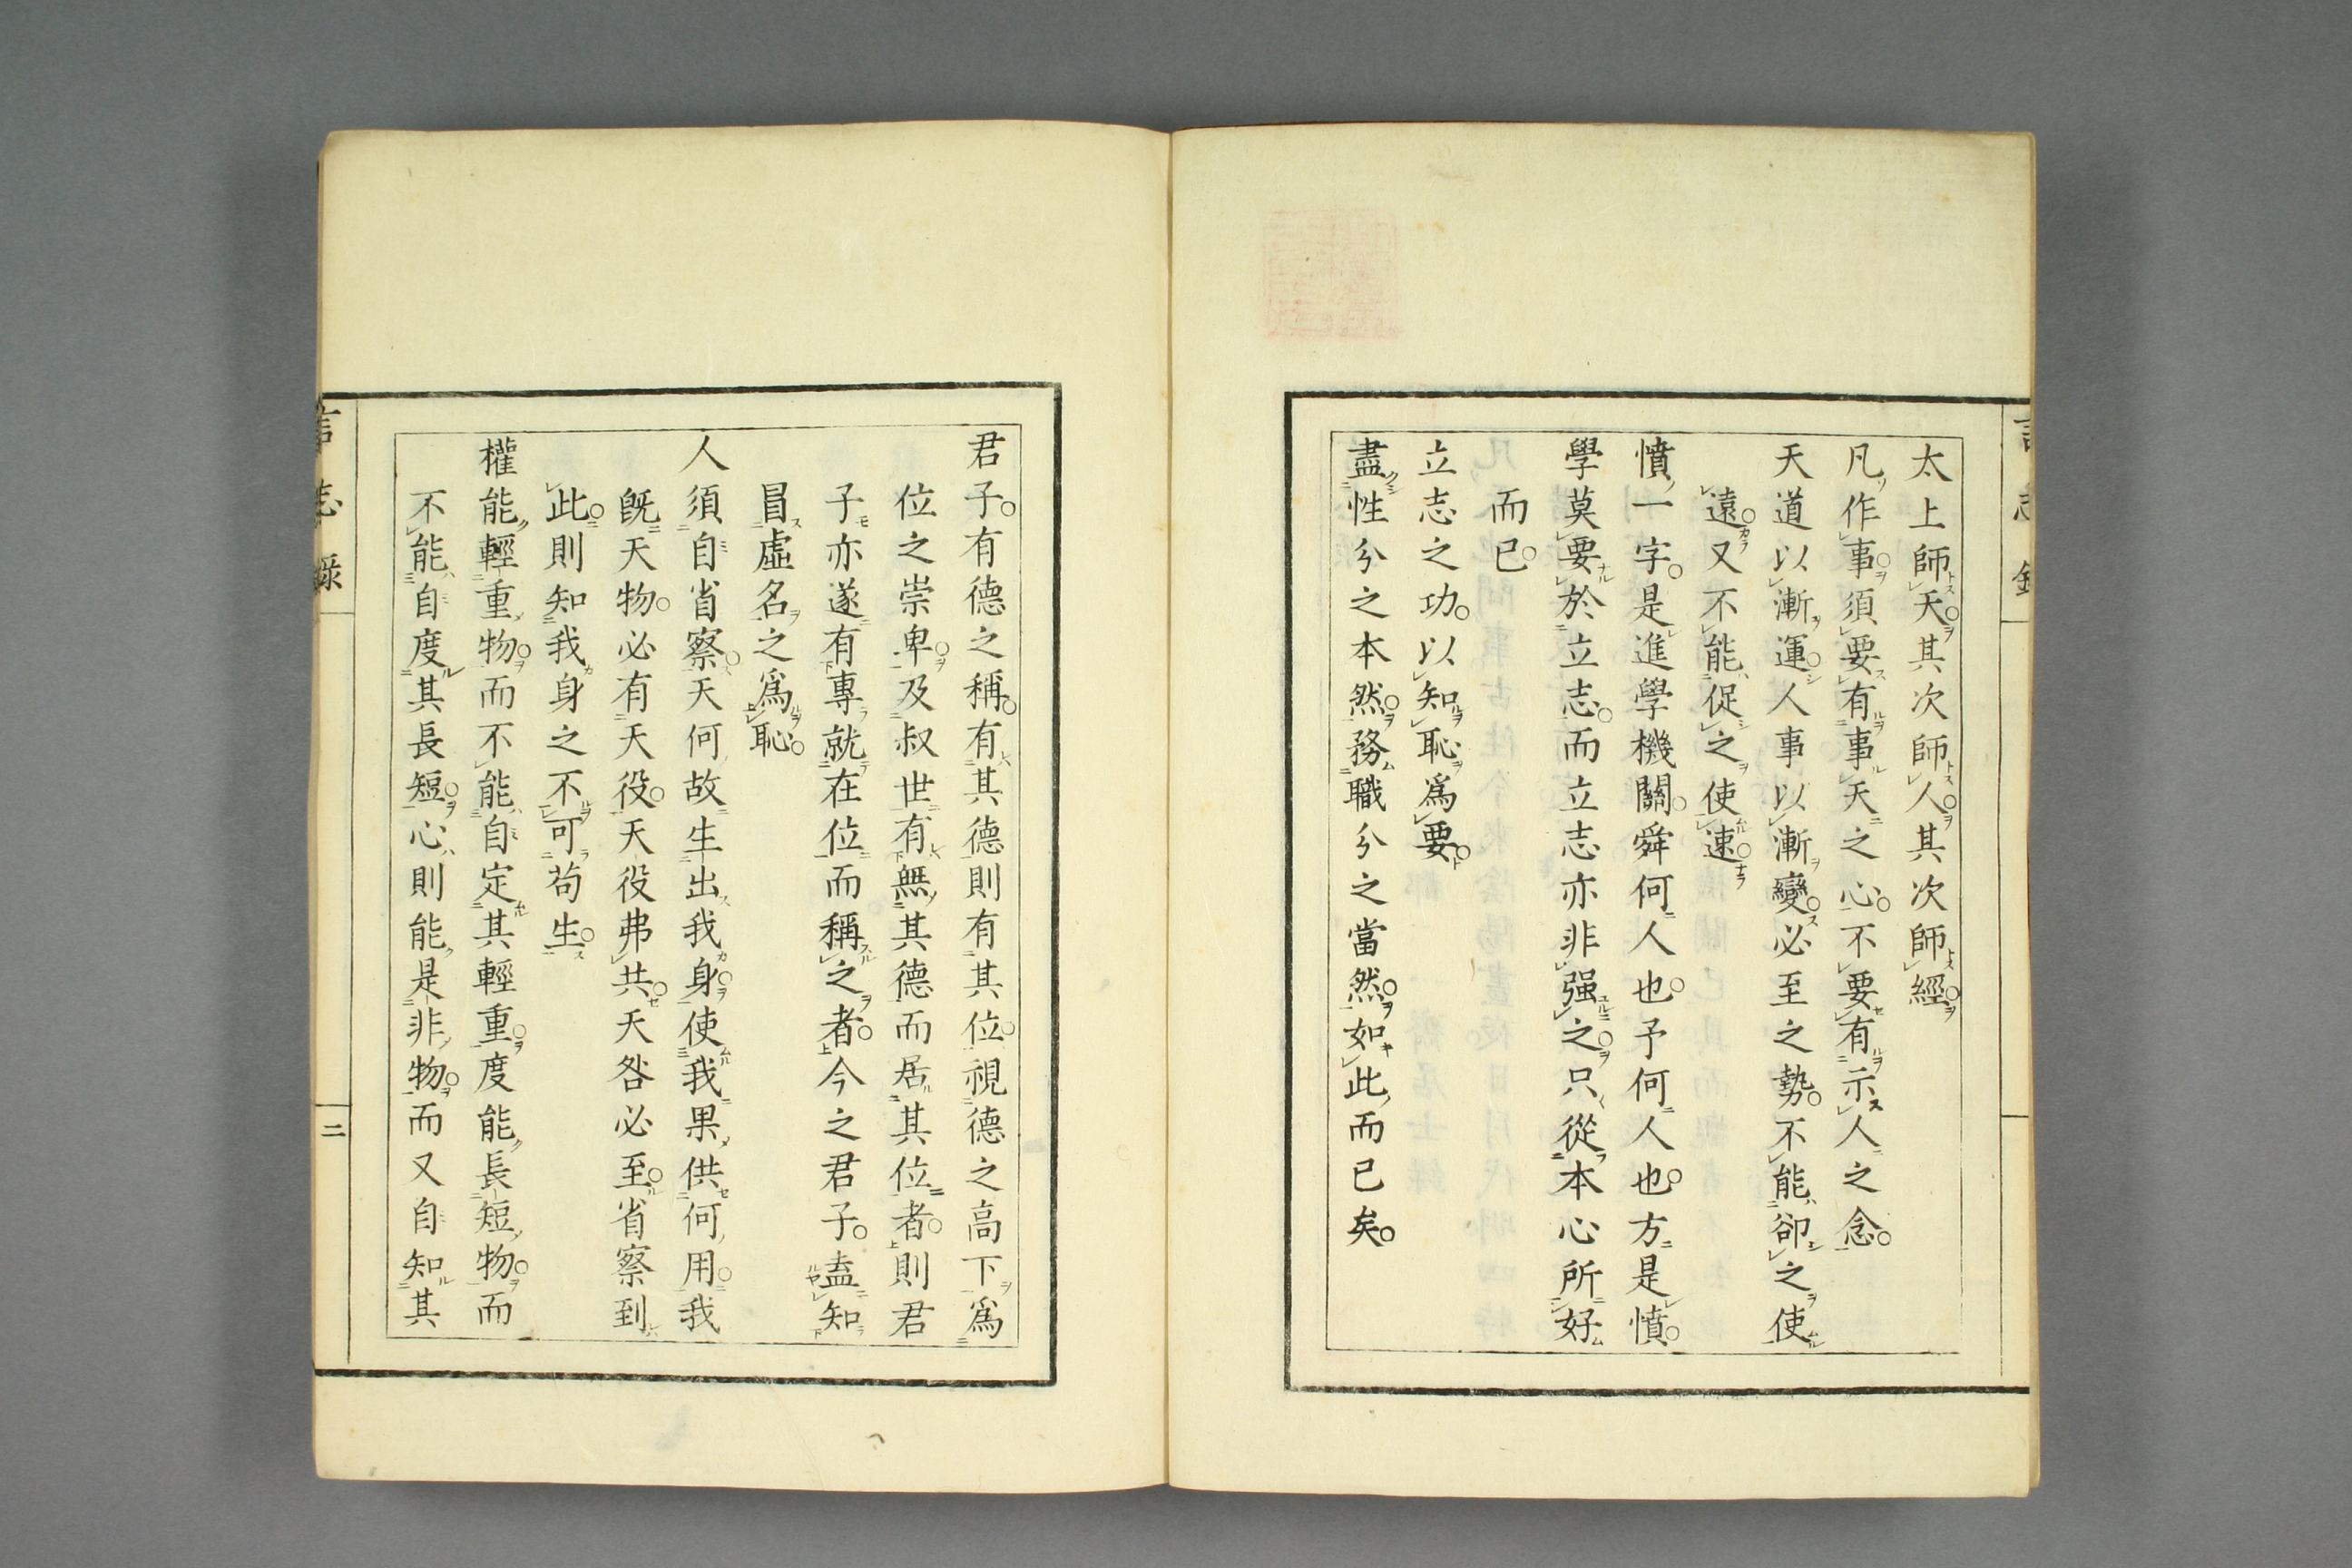 太上師天其次師人其次師經
凡作事須要有事天之心不要有示人之念
天道以漸運人事以漸變必至之勢不能卻之使
遠又不能促之使速
憤一字是進學機關舜何人也予何人也方是憤
學莫要於立志而立志亦非强之只從本心所好
而已
立志之功以知恥爲要
盡性分之本然務職分之當然如此而已矣
君子有德之稱有其德則有其位視德之高下爲
位之崇卑及叔世有無其德而居其位者則君
子亦遂有專就在位而稱之者今之君子盍知
冒虛名之爲恥
人須自省察天何故生出我身使我果供何用我
既天物必有天役天役弗共天咎必至省察到
此則知我身之不可苟生
權能輕重物而不能自定其輕重度能長短物而
不能自度其長短心則能是非物而又自知其
言志錄
二